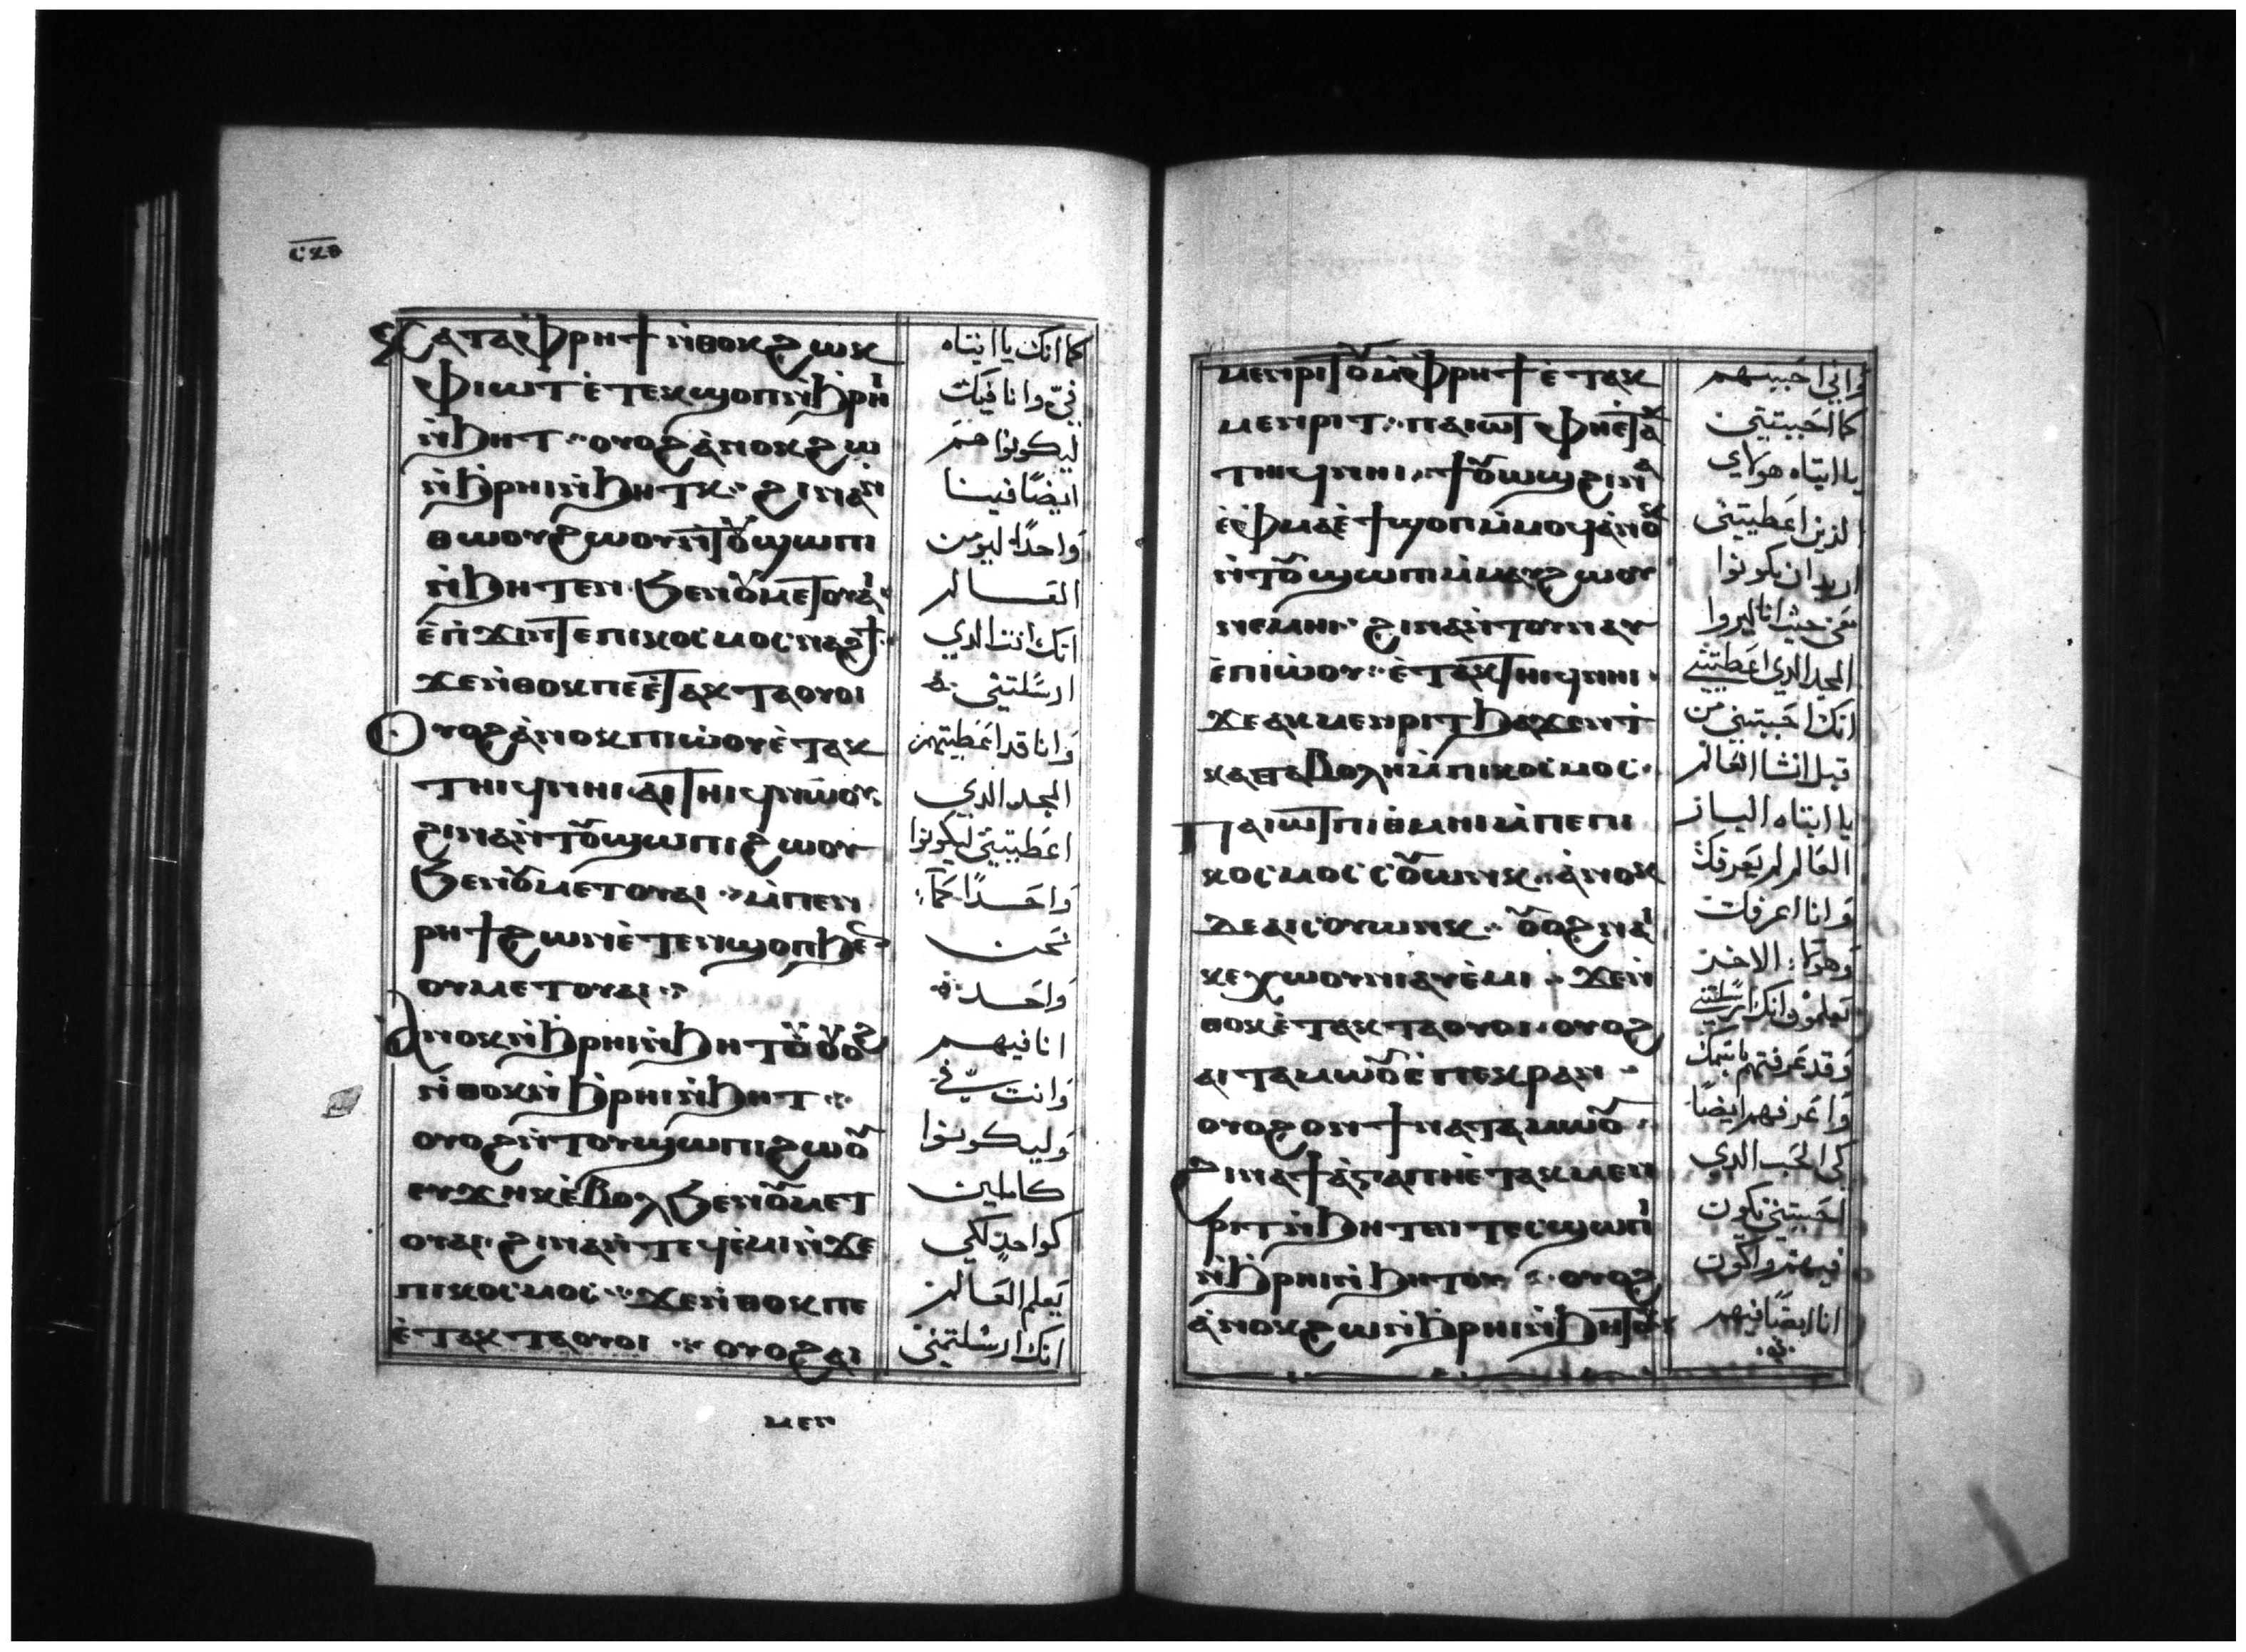 ⲥⲝⲑ
ⲕⲁⲧⲁⲫ̀ⲣⲏϯ ⲛ̀ⲑⲟⲕ ϩⲱⲕ
ⲫⲓⲱⲧ ⲉ̀ⲧⲉⲕϣⲟⲡ ⲛ̀ϧⲣⲏⲓ
ⲛ̀ϧⲏⲧ ⲟⲩⲟϩ ⲁ̀ⲛⲟⲕ ϩⲱ
ⲛ̀ϧⲣⲏⲓ ⲛ̀ϧⲏⲧⲕ ϩⲓⲛⲁ ⲛ
ⲑⲱⲟⲩ ϩⲱⲟⲩ ⲛ̀ⲧⲟⲩϣⲱⲡⲓ
ⲛ̀ϧⲏⲧⲉⲛ ϧⲉⲛ ⲟⲩⲙⲉⲧⲟⲩⲁⲓ
ⲉ̀ⲡϫⲓⲛⲧⲉ ⲡⲓⲕⲟⲥⲙⲟⲥ ⲛⲁϩϯ
ϫⲉ ⲛ̀ⲑⲟⲕ ⲡⲉ ⲉ̀ⲧⲁⲕⲧⲁⲟⲩⲟⲓ
ⲟⲩⲟϩ ⲁ̀ⲛⲟⲕ ⲡⲓⲱ̀ⲟⲩ ⲉ̀ⲧⲁⲕ
ⲧⲏⲓϥ ⲛⲏⲓ ⲁⲓⲧⲏⲓϥ ⲛⲱⲟⲩ
ϩⲓⲛⲁ ⲛ̀ⲧⲟⲩϣⲱⲡⲓ ϩⲱⲟⲩ
ϧⲉⲛ ⲟⲩⲙⲉⲧⲟⲩⲁⲓ ⲙ̀ⲡⲉⲛ
ⲣⲏϯ ϩⲱⲛ ⲉ̀ⲧⲉⲛϣⲟⲡ ϧⲉⲛ
ⲟⲩⲙⲉⲧⲟⲩⲁⲓ
ⲁⲛⲟⲕ ⲛ̀ϧⲣⲏⲓ ⲛ̀ϧⲏⲧⲟⲩ ⲟⲩⲟϩ
ⲛ̀ⲑⲟⲕ ⲛ̀ϧⲣⲏⲓ ⲛ̀ϧⲏⲧ
ⲟⲩⲟϩ ⲛ̀ⲧⲟⲩϣⲱⲡⲓ ϩⲱⲟⲩ
ⲉⲩϫⲏⲕ ⲉ̀ⲃⲟⲗ ϧⲉⲛ ⲟⲩⲙⲉⲧ
ⲟⲩⲁⲓ ϩⲓⲛⲁ ⲛ̀ⲧⲉϥⲉ̀ⲙⲓ ⲛ̀ϫⲉ
ⲡⲓⲕⲟⲥⲙⲟⲥ ϫⲉ ⲛ̀ⲑⲟⲕ ⲡⲉ
ⲉ̀ⲧⲁⲕⲧⲁⲟⲩⲟⲓ ⲟⲩⲟϩ ⲁⲓ
ⲙⲉⲛ
كما انك يا ابتاه
فيّ وانا فيك
ليكونوا هم
ايضًا فينا
واحدًا ليومن
العالم
انك انت الدي
ارسلتني
وانا قد اعطيتهم
المجد الدي
اعطيتني ليكونوا
واحدًا كما
نحن
واحد
انا فيهم
وانت فيّ
وليكونوا
كاملين
كواحد لكي
يعلم العالم
انك ارسلتني
ⲙⲉⲛⲣⲓⲧⲟⲩ ⲙ̀ⲫ̀ⲣⲏϯ ⲉ̀ⲧⲁⲕ
ⲙⲉⲛⲣⲓⲧ ⲡⲁⲓⲱⲧ ⲫⲏⲉ̀ⲧⲁⲕ
ⲧⲏⲓϥ ⲛⲏⲓ ϯⲟⲩⲱϣ ϩⲓⲛⲁ
ⲉ̀ⲫ̀ⲙⲁ ⲉ̀ϯϣⲟⲡ ⲙ̀ⲙⲟϥ ⲁ̀ⲛⲟⲕ
ⲛ̀ⲧⲟⲩϣⲱⲡⲓ ⲙ̀ⲙⲁⲩ ϩⲱⲟⲩ
ⲛⲉⲙⲏⲓ ϩⲓⲛⲁ ⲛ̀ⲧⲟⲩⲛⲁⲩ
ⲉ̀ⲡⲓⲱ̀ⲟⲩ ⲉ̀ⲧⲁⲕⲧⲏⲓϥ ⲛⲏⲓ
ϫⲉ ⲁⲕⲙⲉⲛⲣⲓⲧ ϧⲁϫⲉⲛ ⲧ
ⲕⲁⲧⲁⲃⲟⲗⲏ ⲙ̀ⲡⲓⲕⲟⲥⲙⲟⲥ
ⲡⲁⲓⲱⲧ ⲡⲓⲑⲙⲏⲓ ⲙ̀ⲡⲉ ⲡⲓ
ⲕⲟⲥⲙⲟⲥ ⲥⲟⲩⲱⲛⲕ ⲁ̀ⲛⲟⲕ
ⲇⲉ ⲁⲓⲥⲟⲩⲱⲛⲕ ⲟⲩⲟϩ ⲛⲁⲓ
ⲕⲉⲭⲱⲟⲩⲛⲓ ⲁⲩⲉ̀ⲙⲓ ϫⲉ ⲛ̀
ⲑⲟⲕ ⲉ̀ⲧⲁⲕⲧⲁⲟⲩⲟⲓ ⲟⲩⲟϩ
ⲁⲓⲧⲁⲙⲱⲟⲩ ⲉ̀ⲡⲉⲕⲣⲁⲛ
ⲟⲩⲟϩ ⲟⲛ ϯⲛⲁⲧⲁⲙⲱⲟⲩ
ϩⲓⲛⲁ ϯⲁ̀ⲅⲁⲡⲏ ⲉ̀ⲧⲁⲕⲙⲉⲛ
ⲣⲓⲧ ⲛ̀ϧⲏⲧⲥ ⲛ̀ⲧⲉⲥϣⲱⲡⲓ
ⲛ̀ϧⲣⲏⲓ ⲛ̀ϧⲏⲧⲟⲩ ⲟⲩⲟϩ
ⲁ̀ⲛⲟⲕ ϩⲱ ⲛ̀ϧⲣⲏⲓ ⲛ̀ϧⲏⲧⲟⲩ
واني احببتهم
كما احببتني
يا ابتاه هولاي
الذين اعطيتني
اريد ان يكونوا
معي حيث انا ليروا
المجد الدي اعطيتني
انك احببتني من
قبل انشا العالم
يا ابتاه البار
العالم لم يعرفك
وانا اعرفك
وهولا الاخر
يعلموا انك ارسلتني
وقد عرفتهم باسمك
واعرفهم ايضًا
كي الحب الدي
احببتني تكون
فيهم واكون
انا ايضًا فيهم